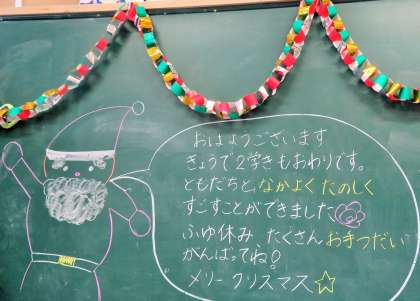 おはようございます
きょうで2学きもおわりです。
ともだちと、なかよくたのしく
すごすことができました
ふゆ休み たくさんおてつだい
がんばってね!
メリークリスマス☆